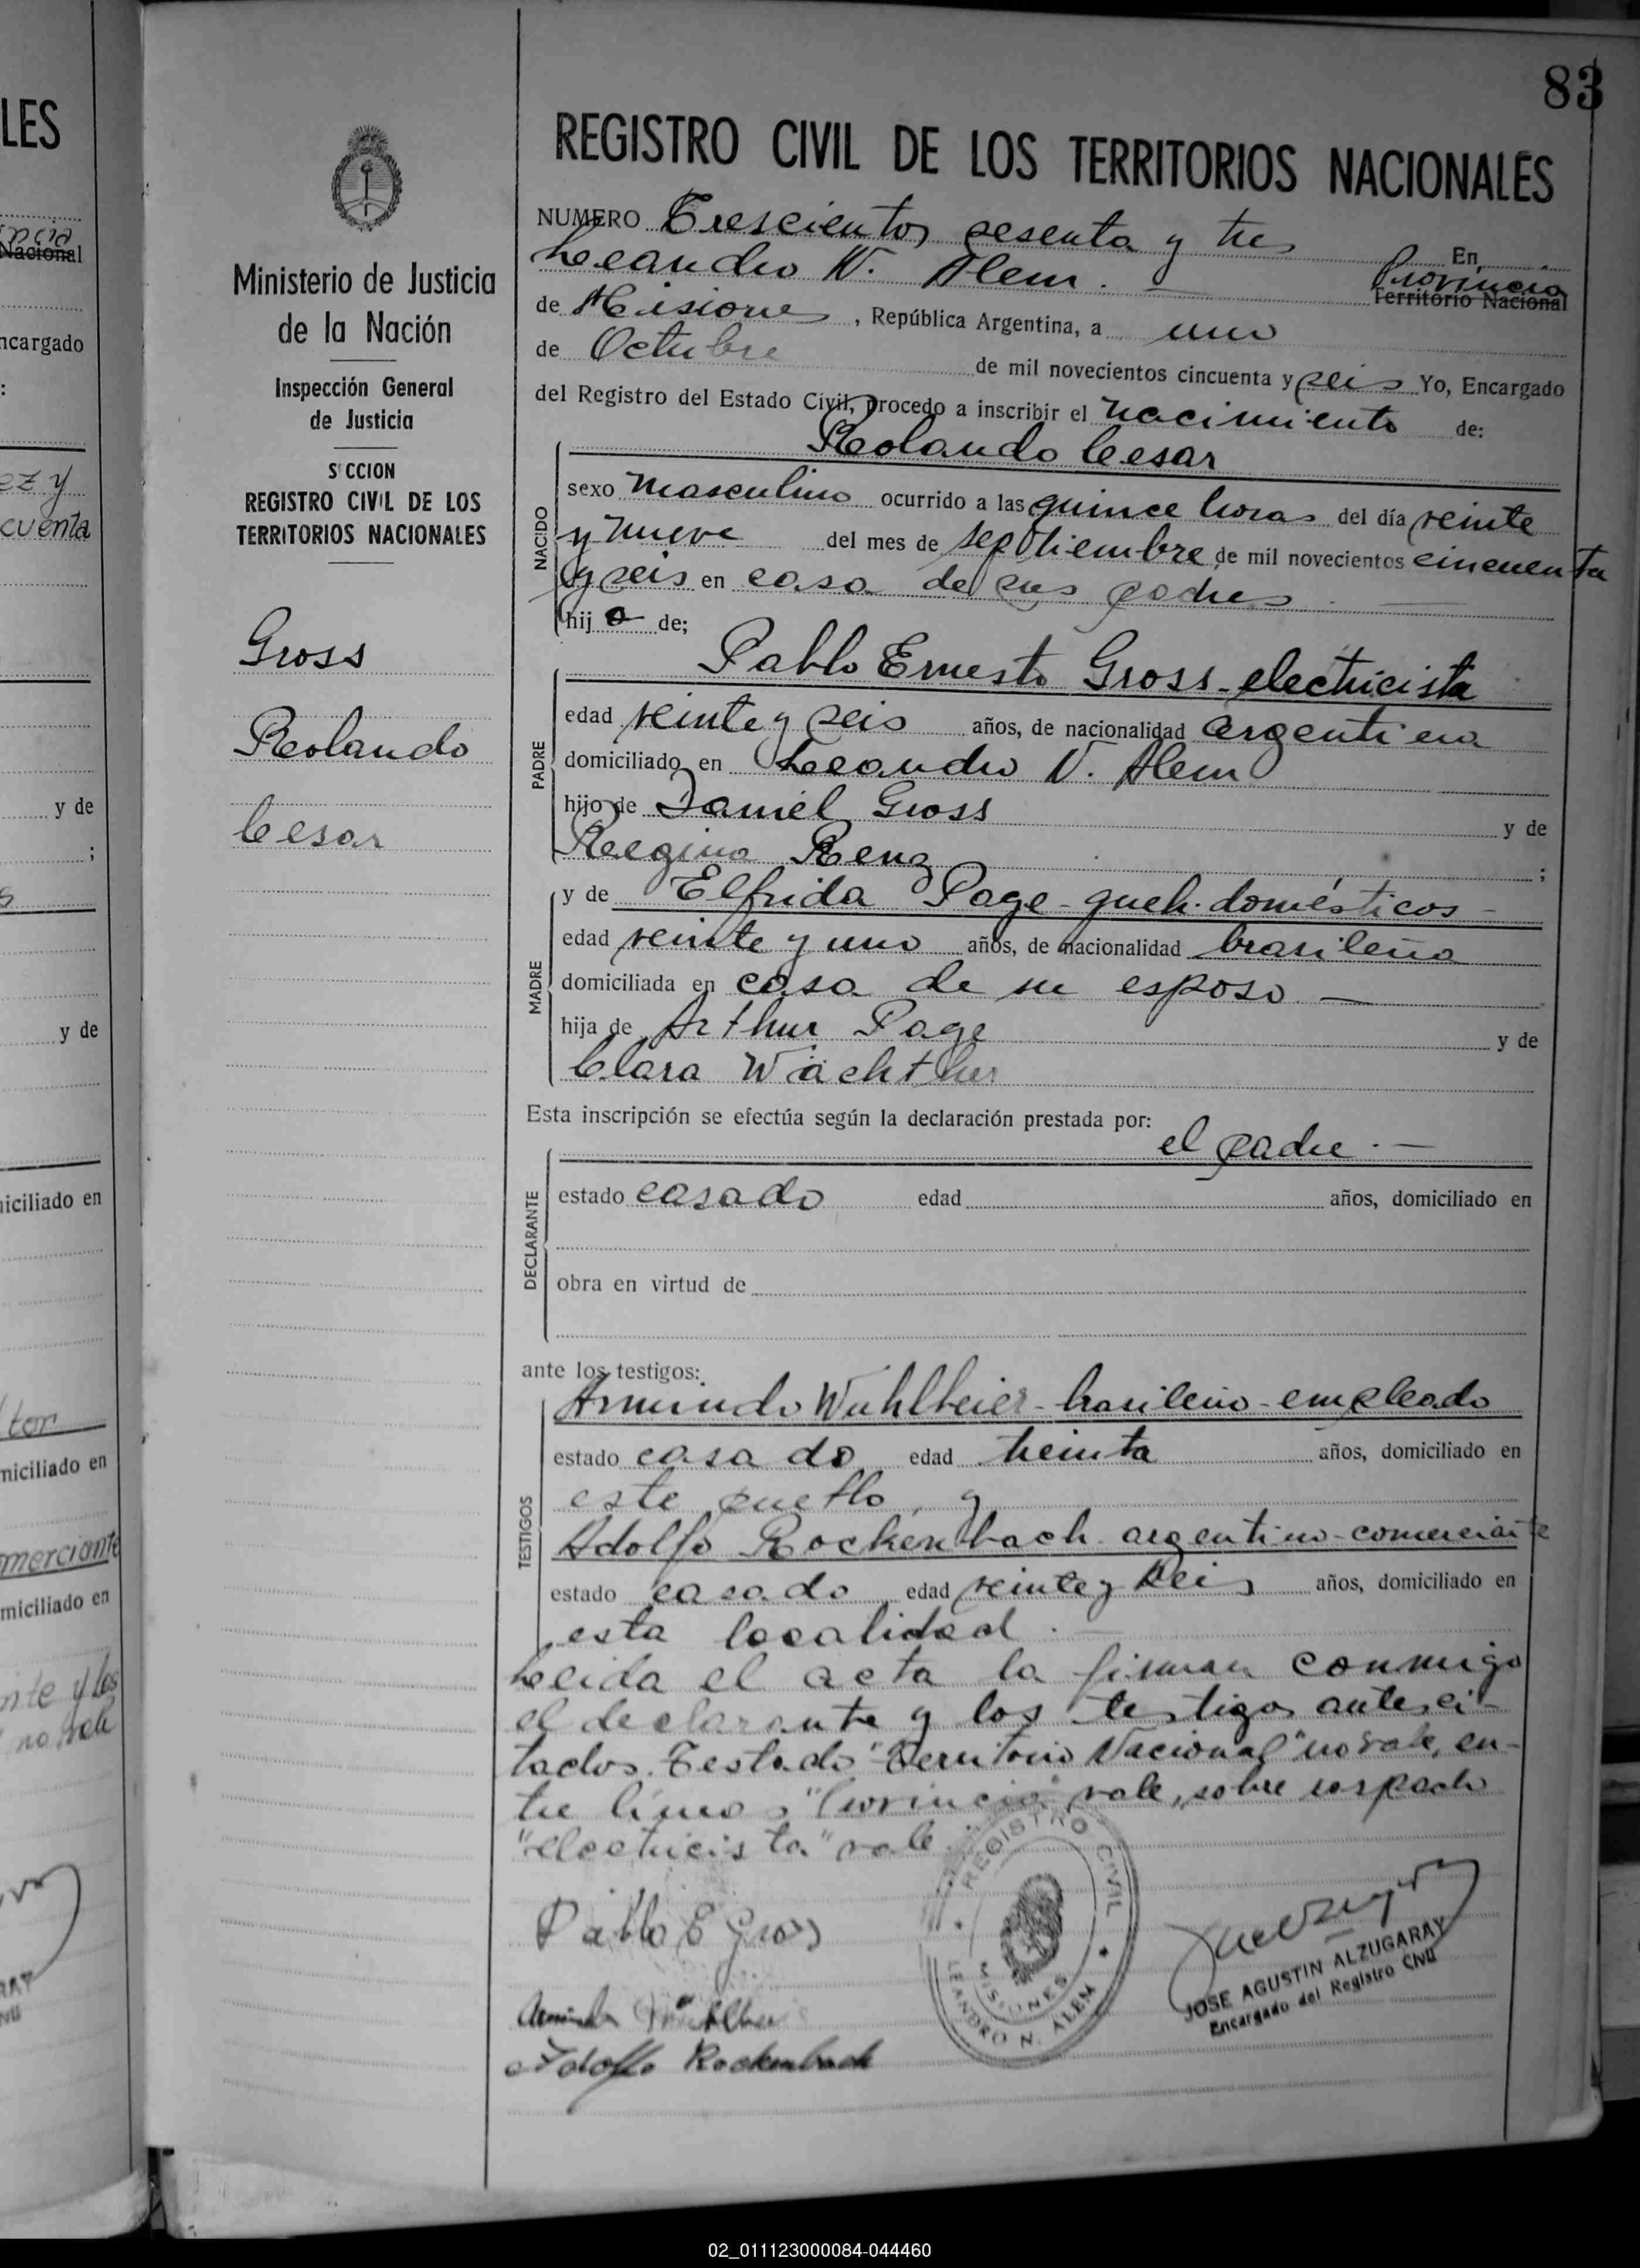 83
LES
Nacional
ncargado
:
ez y
cuenta
y de
;
y de
niciliado en
tor
miciliado en
merciante
miciliado en
nte y los
no vale
Ministerio de Justicia
de la Nación
Inspección General
de Justicia
S'CCION
REGISTRO CIVIL DE LOS
TERRITORIOS NACIONALES
Gross
Rolando
Cesar
REGISTRO CIVIL DE LOS TERRITORIOS NACIONALES
NUMERO Trescientos sesenta y tres En
Leandro N. Alem. Provincia
Territorio Nacional
de Misiones, República Argentina, a uno
de Octubre de mil novecientos cincuenta y seis Yo, Encargado
del Registro del Estado Civil, procedo a inscribir el nacimiento de:
Rolando Cesar
NACIDO
sexo masculino ocurrido a las quince horas del día veinte
y nueve del mes de septiembre de mil novecientos cincuenta
y seis en casa de sus padres. —
hijo de;
Pablo Ernesto Gross - electricista
PADRE
edad veinte y seis años, de nacionalidad argentina
domiciliado en Leandro N. Alem
hijo de Daniel Gross y de
Regina Renz ;
y de Elfrida Page - queh. domésticos -
MADRE
edad veinte y uno años, de nacionalidad brasileña
domiciliada en casa de su esposo. —
hija de Arthur Page y de
Clara Wächther
Esta inscripción se efectúa según la declaración prestada por:
el padre. —
DECLARANTE
estado casado edad años, domiciliado en
obra en virtud de
ante los testigos:
Armindo Wuhlbeier - brasileño - empleado
TESTIGOS
estado casado edad treinta años, domiciliado en
este pueblo, y
Adolfo Rockenbach. argentino - comerciante
estado casado edad veinte y seis años, domiciliado en
esta localidad. —
Leida el acta la firman conmigo
el declarante y los testigos antesci-
tados. Testado "Territorio Nacional" no vale, en-
tre lineas "Provincia" vale, sobre raspado
"electricista" vale.
REGISTRO CIVIL
MISIONES
LEANDRO N. ALEM
Pablo E Gross
JOSE AGUSTIN ALZUGARAY
Encargado del Registro Civil
Adolfo Rockenbach
02_011123000084-044460